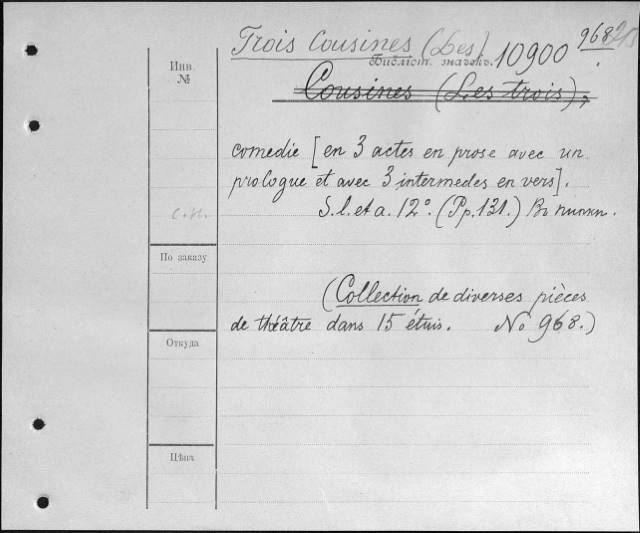 Trois Cousines (Les). 10900 968
Библіот. значекъ.
Инв.
№
Cousines (Les trois),
comedie [en 3 actes en prose avec un
prologue et avec 3 intermedes en vers].
S. l. et a. 12°. (Pp. 131.) Въ папкѣ.
По заказу
(Collection de diverses pièces
de théâtre dans 15 étuis. No 968.)
Откуда
Цѣна